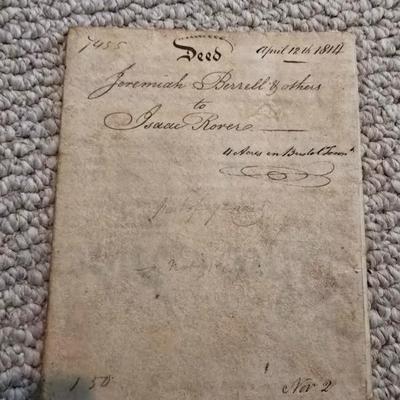 7455
Deed April 12th 1814
Jeremiah Berrell & others
to
Isaac Rover
4 Acres in Bristol Town
1 50 Nov 2